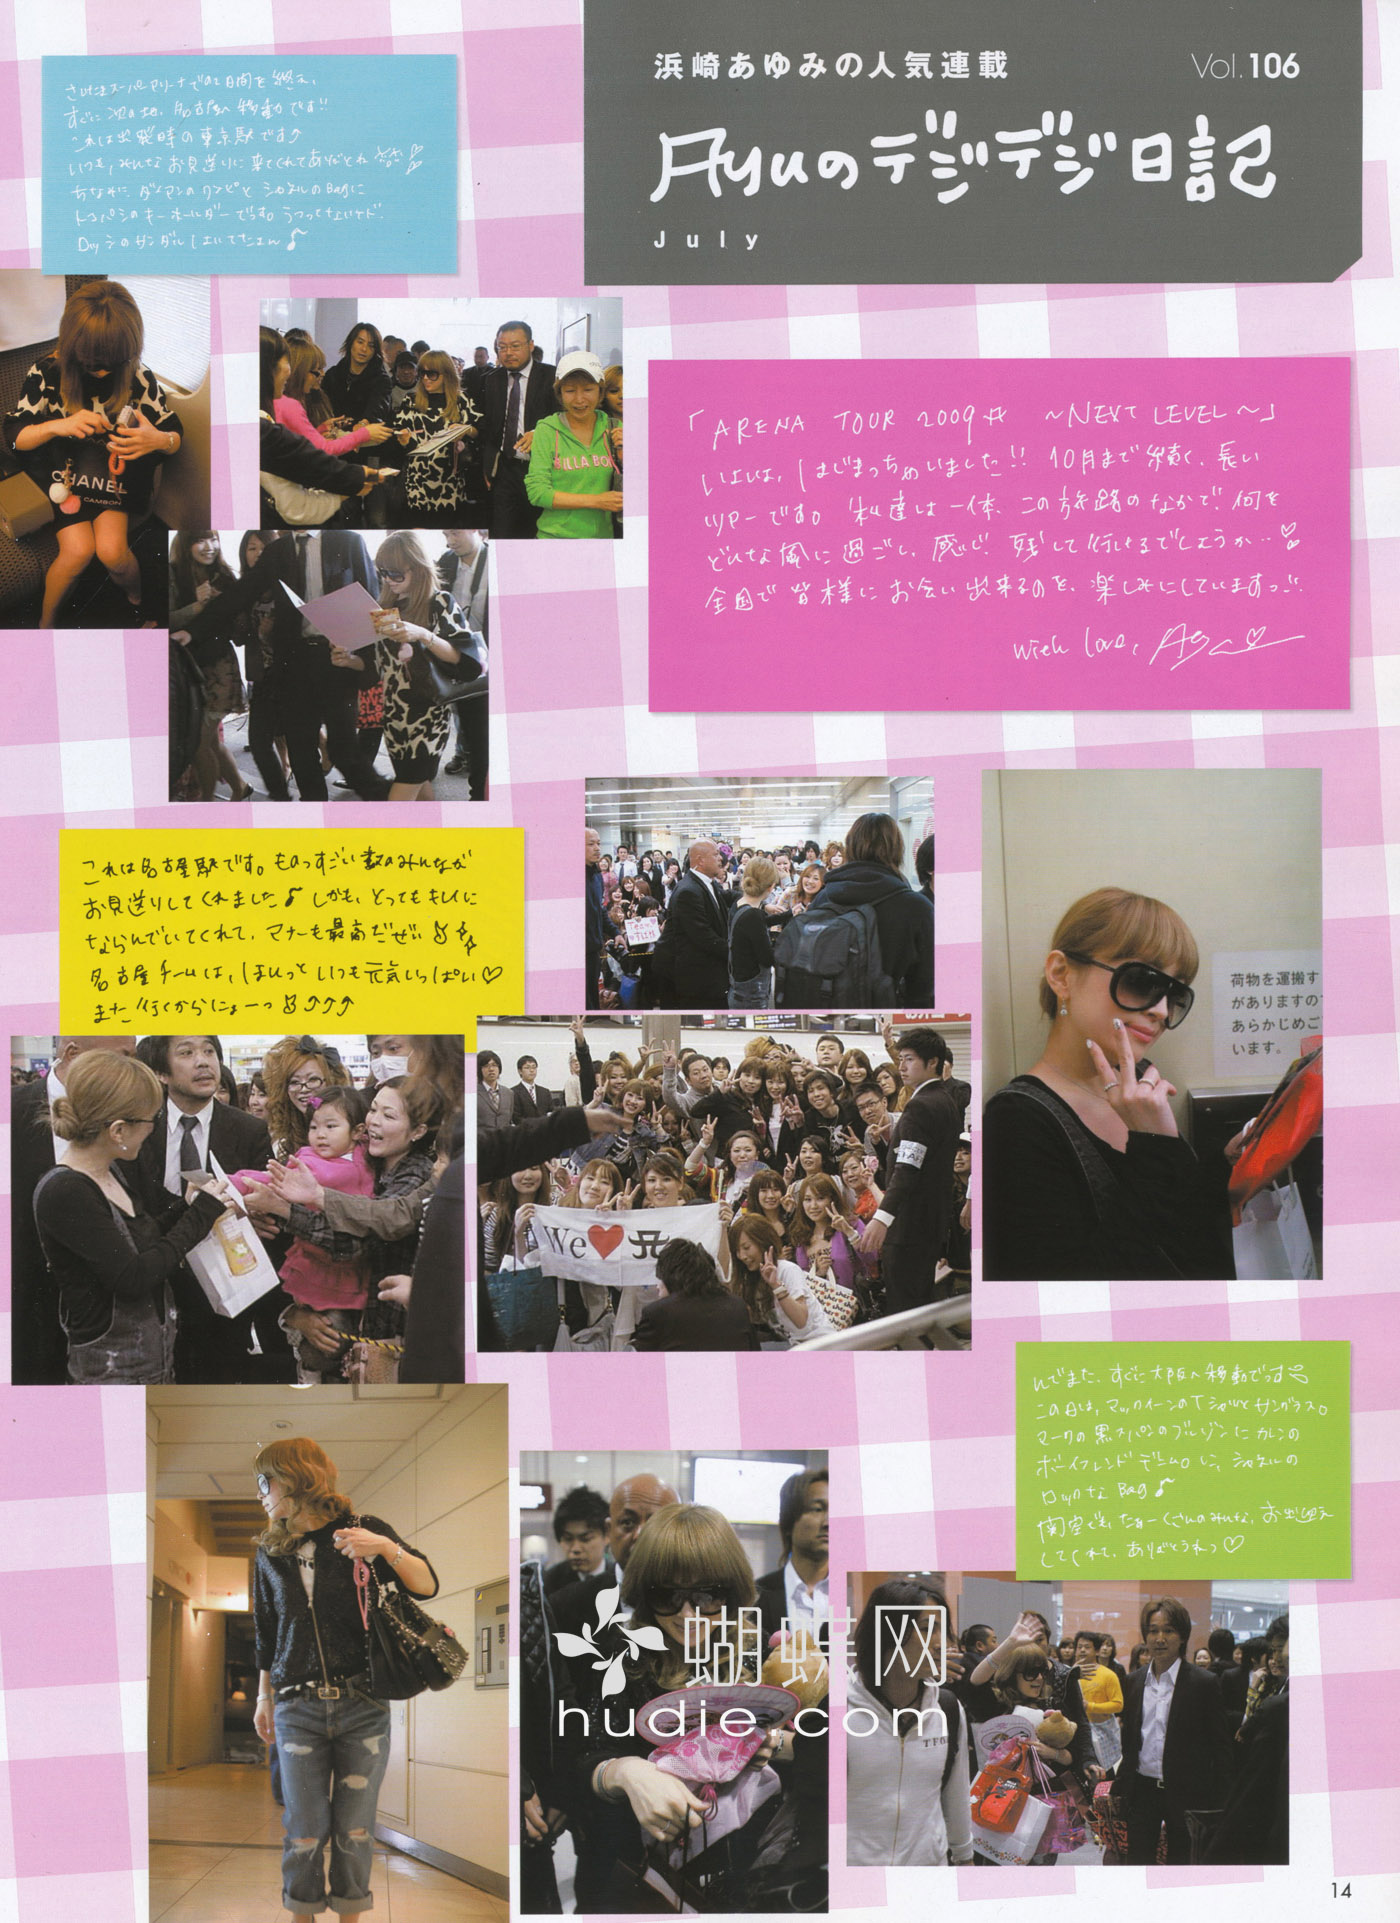 浜崎あゆみの人気連載
Vol.106
Ayuのデジデジ日記
July
さいたまスーパーアリーナでの2日間を終え、
すぐに次の地、名古屋へ移動です!!
これは出発時の東京駅です♪
いつも、みんなお見送りに来てくれてありがとね
ちなみに、ダルメシアンのワンピとシャネルのBagに
キーホルダーです。うつってないケド、
サンダルはいてたよん♪
CHANEL
CAMBON
ILLA BO
「ARENA TOUR 2009 A 〜NEXT LEVEL〜」
いよいよ、はじまっちゃいました!! 10月まで続く、長い
ツアーです。私達は一体、この旅路のなかで、何を
どんな風に過ごし、感じ、残して行けるでしょうか…
全国で皆様にお会い出来るのを、楽しみにしていますっ
with love, Ayu
これは名古屋駅です。ものすごい数のみんなが
お見送りしてくれました♪しかも、とってもキレイに
ならんでいてくれて、マナーも最高だぜい
名古屋チームは、ほんっといつも元気いっぱい♡
また行くからにょーっ
Team
荷物を運搬す
がありますので
あらかじめご
います。
We ♥ A
んでまた、すぐに大阪へ移動でっす
この日は、マックイーンのTシャツとサングラス。
マークの黒スパンのブルゾンにカレンの
ボーイフレンドデニム。に、シャネルの
ロックなBag♪
関空でも、たぁーくさんのみんな、お出迎え
してくれて、ありがとうねっ♡
蝴蝶网
hudie.com
14